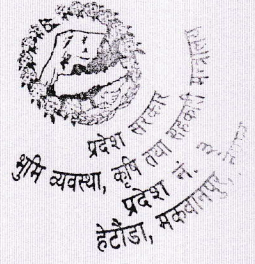 प्रदेश सरकार
भूमि व्यवस्था, कृषि तथा सहकारी मन्त्रालय
प्रदेश नं. ३
हेटौंडा, मकवानपुर, नेपाल